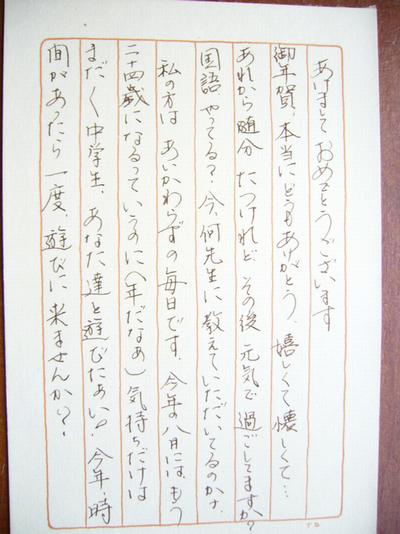 あけまして おめでとうございます
御年賀、本当にどうもありがとう、嬉しくて懐しくて…
あれから随分 たつけれど その後 元気で過ごしてますか?
国語 やってる? 今、何先生に教えていただいてるのかナ
私の方は あいかわらずの毎日です、今年の八月には、もう
二十四歳になるっていうのに(年だなぁ)気持ちだけは
まだ〱中学生、あなた達と遊びたぁい!今年、時
間があったら 一度、遊びに来ませんか?